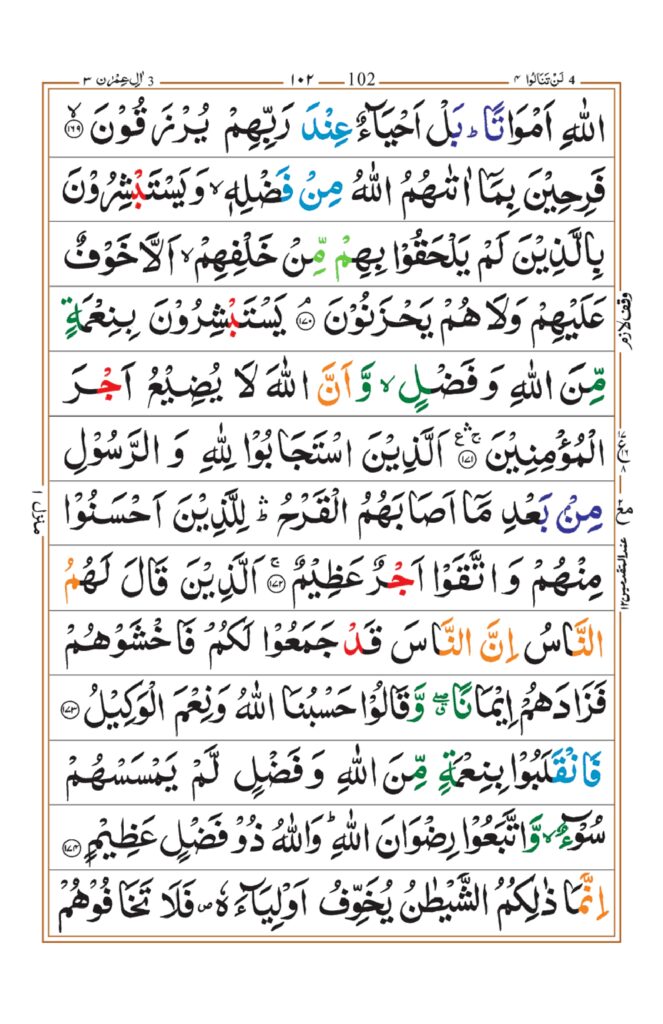 4 لَنْ تَنَالُوا ٤ 102 ١٠٢ 3 اٰلِ عِمْرٰن ٣
اللّٰهِ اَمْوَاتًا ؕ بَلْ اَحْيَآءٌ عِنْدَ رَبِّهِمْ يُرْزَقُوْنَ ۙ‏﴿۱۶۹﴾
فَرِحِيْنَ بِمَاۤ اٰتٰٮهُمُ اللّٰهُ مِنْ فَضْلِهٖ ۙ وَيَسْتَبْشِرُوْنَ
بِالَّذِيْنَ لَمْ يَلْحَقُوْا بِهِمْ مِّنْ خَلْفِهِمْ ۙ اَلَّا خَوْفٌ
عَلَيْهِمْ وَلَا هُمْ يَحْزَنُوْنَ ۘ‏﴿۱۷۰﴾ يَسْتَبْشِرُوْنَ بِنِعْمَةٍ
مِّنَ اللّٰهِ وَفَضْلٍ ۙ وَّاَنَّ اللّٰهَ لَا يُضِيْعُ اَجْرَ
الْمُؤْمِنِيْنَ ۛۚ ع ‏﴿۱۷۱﴾ اَلَّذِيْنَ اسْتَجَابُوْا لِلّٰهِ وَالرَّسُوْلِ
مِنْۢ بَعْدِ مَاۤ اَصَابَهُمُ الْقَرْحُ ؕۛ لِلَّذِيْنَ اَحْسَنُوْا
مِنْهُمْ وَاتَّقَوْا اَجْرٌ عَظِيْمٌ ۚ‏﴿۱۷۲﴾ اَلَّذِيْنَ قَالَ لَهُمُ
النَّاسُ اِنَّ النَّاسَ قَدْ جَمَعُوْا لَكُمْ فَاخْشَوْهُمْ
فَزَادَهُمْ اِيْمَانًا ۖۗ وَّقَالُوْا حَسْبُنَا اللّٰهُ وَنِعْمَ الْوَكِيْلُ‏﴿۱۷۳﴾
فَانْقَلَبُوْا بِنِعْمَةٍ مِّنَ اللّٰهِ وَفَضْلٍ لَّمْ يَمْسَسْهُمْ
سُوْٓءٌ ۙ وَّاتَّبَعُوْا رِضْوَانَ اللّٰهِ ؕ وَاللّٰهُ ذُوْ فَضْلٍ عَظِيْمٍ‏﴿۱۷۴﴾
اِنَّمَا ذٰلِكُمُ الشَّيْطٰنُ يُخَوِّفُ اَوْلِيَآءَهٗ ۖ فَلَا تَخَافُوْهُمْ
وقف لازم
منزل ١